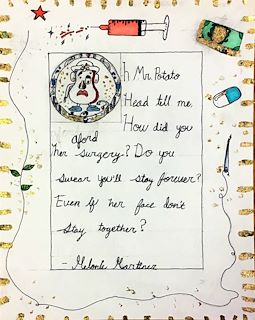 Oh Mr. Potato
Head tell me.
How did you
aford
her surgery? Do you
swear you'll stay forever?
Even if her face don't
stay together?
- Melanie Martinez